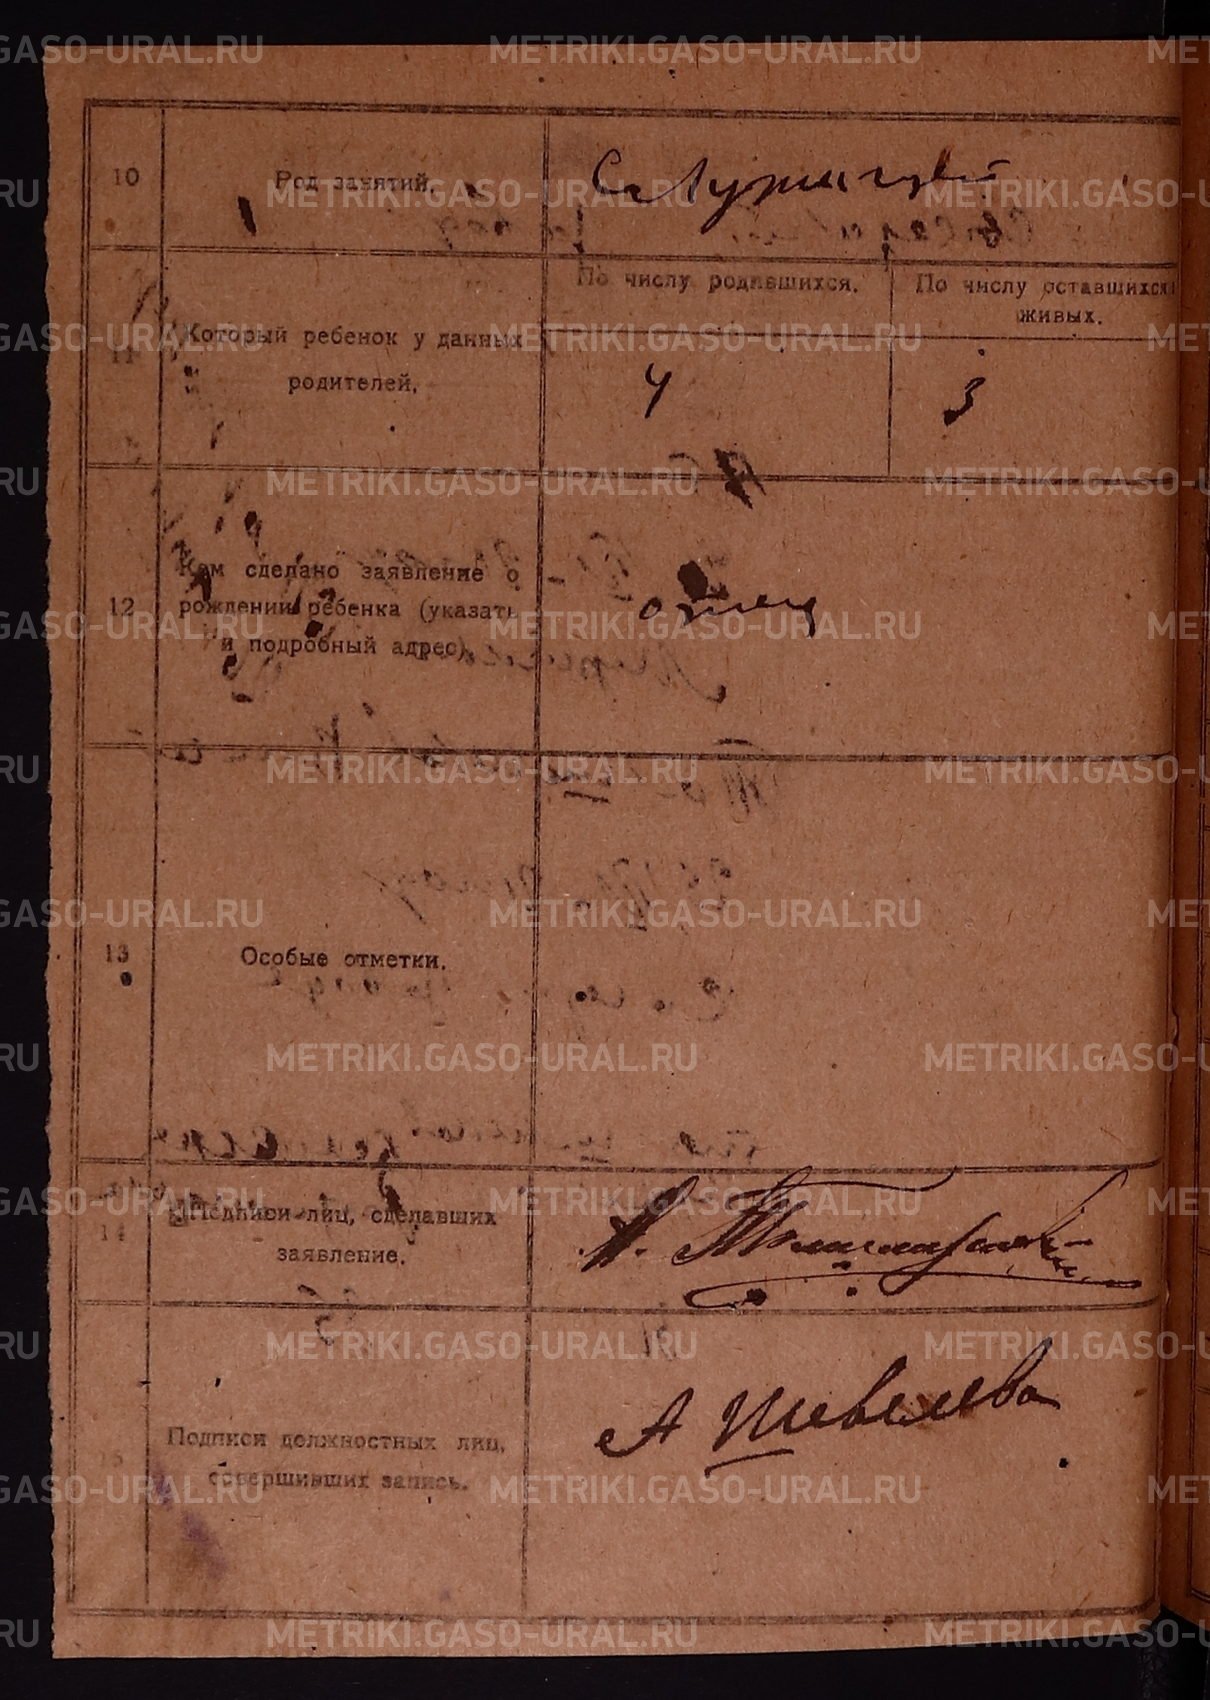 10
Род занятий.
Служащий
11
Который ребенок у данных
родителей.
По числу родившихся.
По числу оставшихся
живых.
4
3
12
Кем сделано заявление о
рождении ребенка (указать
и подробный адрес).
отец
13
Особые отметки.
14
Подписи лиц, сделавших
заявление.
15
Подписи должностных лиц,
совершивших запись.
А Шевелева
METRIKI.GASO-URAL.RU